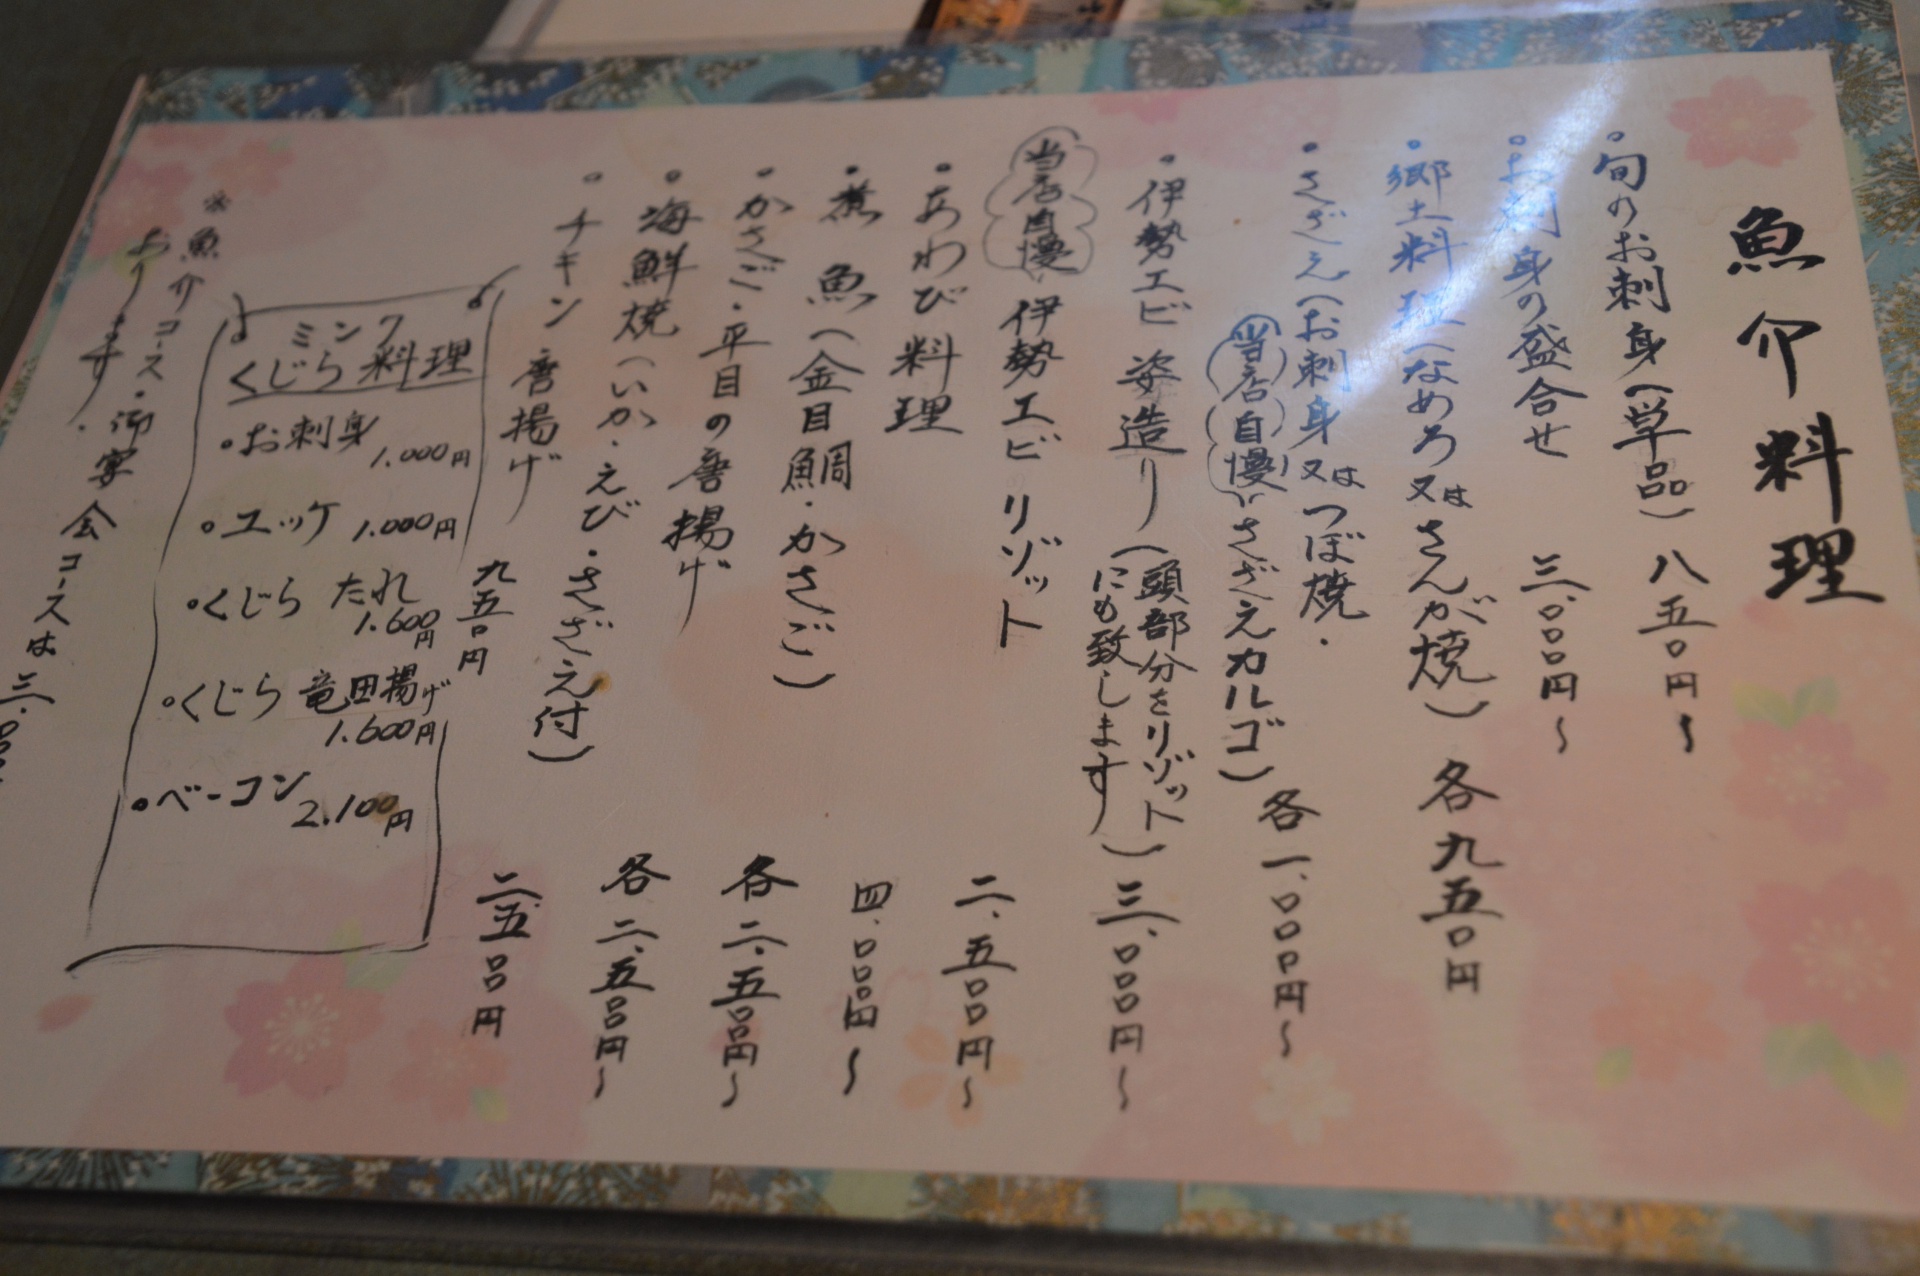 魚介料理
・旬のお刺身(単品) 八五〇円〜
・お刺身の盛合せ 三.〇〇〇円〜
・郷土料理(なめろ又はさんが焼) 各九五〇円
・さざえ(お刺身又はつぼ焼・
当店自慢 さざえカルゴ) 各一.〇〇〇円〜
・伊勢エビ姿造り(頭部分をリゾット
にも致します) 三.〇〇〇円〜
当店自慢 伊勢エビリゾット 二.五〇〇円〜
・あわび料理 四.〇〇〇円〜
・煮魚(金目鯛・かさご) 各二.五〇〇円〜
・かさご・平目の唐揚げ 各二.五〇〇円〜
・海鮮焼(いか・えび・さざえ付) 二.五〇〇円
・チキン唐揚げ 九五〇円
ミンク
くじら料理
・お刺身 1.000円
・ユッケ 1.000円
・くじら たれ 1.600円
・くじら 竜田揚げ 1.600円
・ベーコン 2.100円
※魚介コース・御宴会コースは三.〇〇〇
おります.